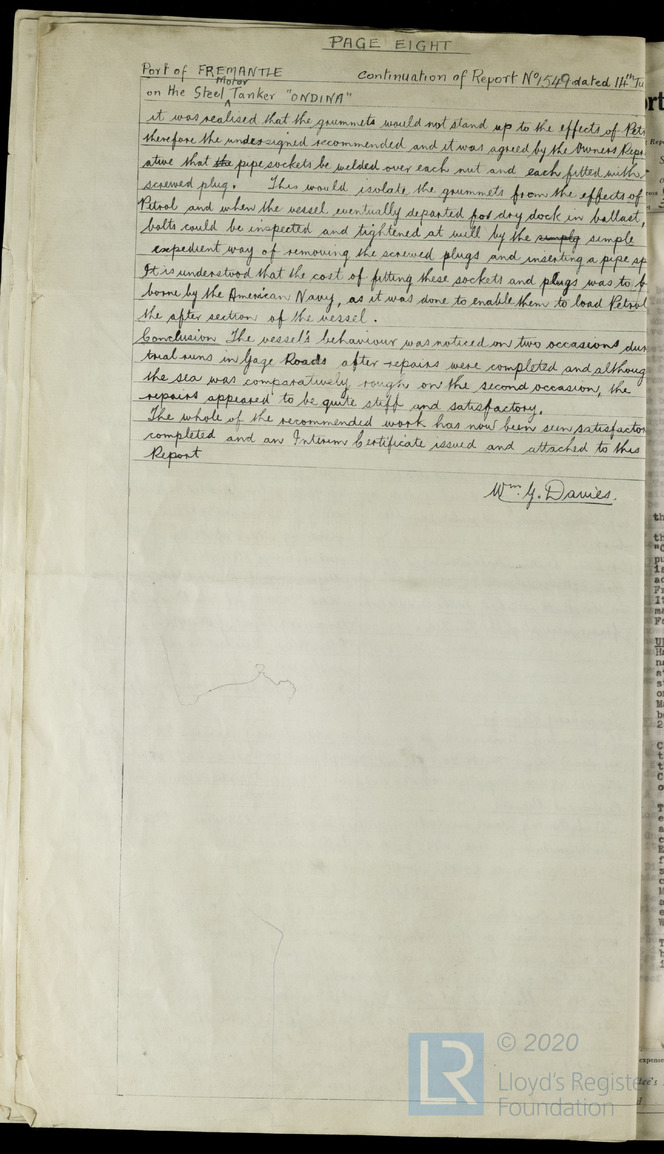 PAGE EIGHT
Port of FREMANTLE continuation of Report No 1549 dated 14th Ju
on the Steel Motor Tanker "ONDINA"
it was realised that the grummets would not stand up to the effects of Petr
therefore the undersigned recommended and it was agreed by the Owners Repr
ative that the pipe sockets be welded over each nut and each fitted with
screwed plug. This would isolate the grummets from the effects of
Petrol and when the vessel eventually departed for dry dock in ballast,
bolts could be inspected and tightened at will by the simply simple
expedient way of removing the screwed plugs and inserting a pipe sp
It is understood that the cost of fitting these sockets and plugs was to b
borne by the American Navy, as it was done to enable them to load Petrol
the after section of the vessel.
Conclusion The vessel's behaviour was noticed on two occasions dur
trial runs in Gage Roads after repairs were completed and althoug
the sea was comparatively rough on the second occasion, the
repairs appeared to be quite stiff and satisfactory.
The whole of the recommended work has now been seen satisfactor
completed and an Interim Certificate issued and attached to this
Report
Wm G. Davies.
© 2020
LR
Lloyd's Registe
Foundation